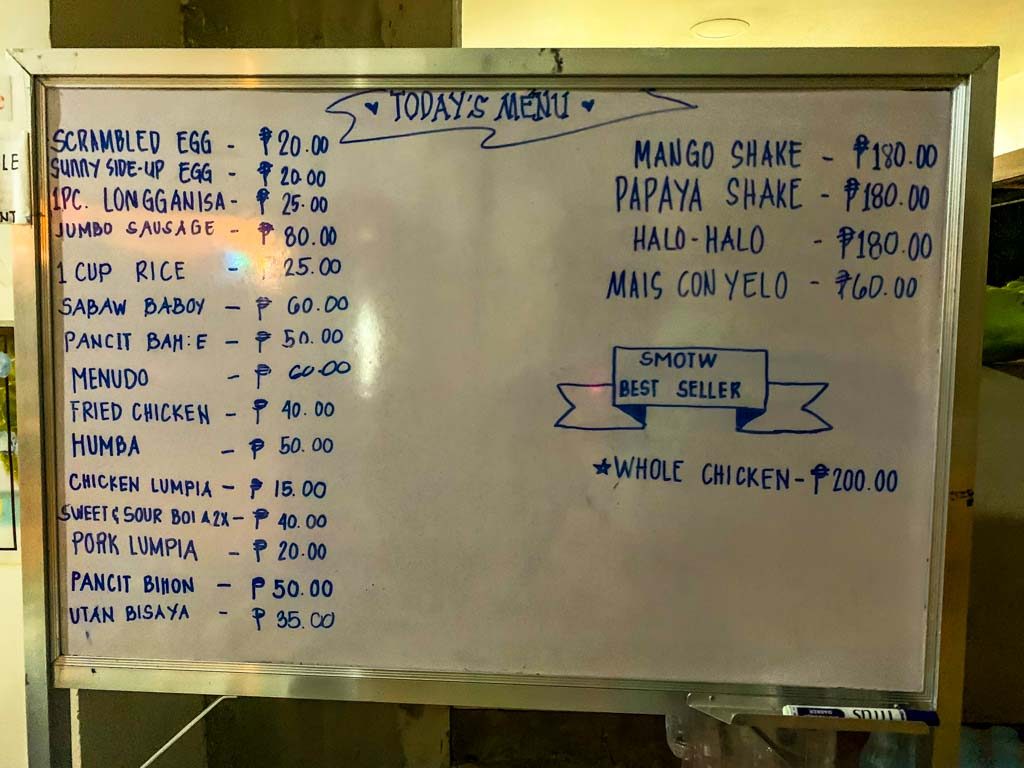 TODAY'S MENU
SCRAMBLED EGG - ₱20.00
SUNNY SIDE-UP EGG - ₱20.00
1PC. LONGGANISA - ₱25.00
JUMBO SAUSAGE - ₱80.00
1 CUP RICE - ₱25.00
SABAW BABOY - ₱60.00
PANCIT - ₱50.00
MENUDO - ₱60.00
FRIED CHICKEN - ₱40.00
HUMBA - ₱50.00
CHICKEN LUMPIA - ₱15.00
SWEET & SOUR - ₱40.00
PORK LUMPIA - ₱20.00
PANCIT BIHON - ₱50.00
UTAN BISAYA - ₱35.00
MANGO SHAKE - ₱180.00
PAPAYA SHAKE - ₱180.00
HALO-HALO - ₱180.00
MAIS CON YELO - ₱60.00
SMOTW
BEST SELLER
★WHOLE CHICKEN - ₱200.00
LE
NT
TITUS
MARKER